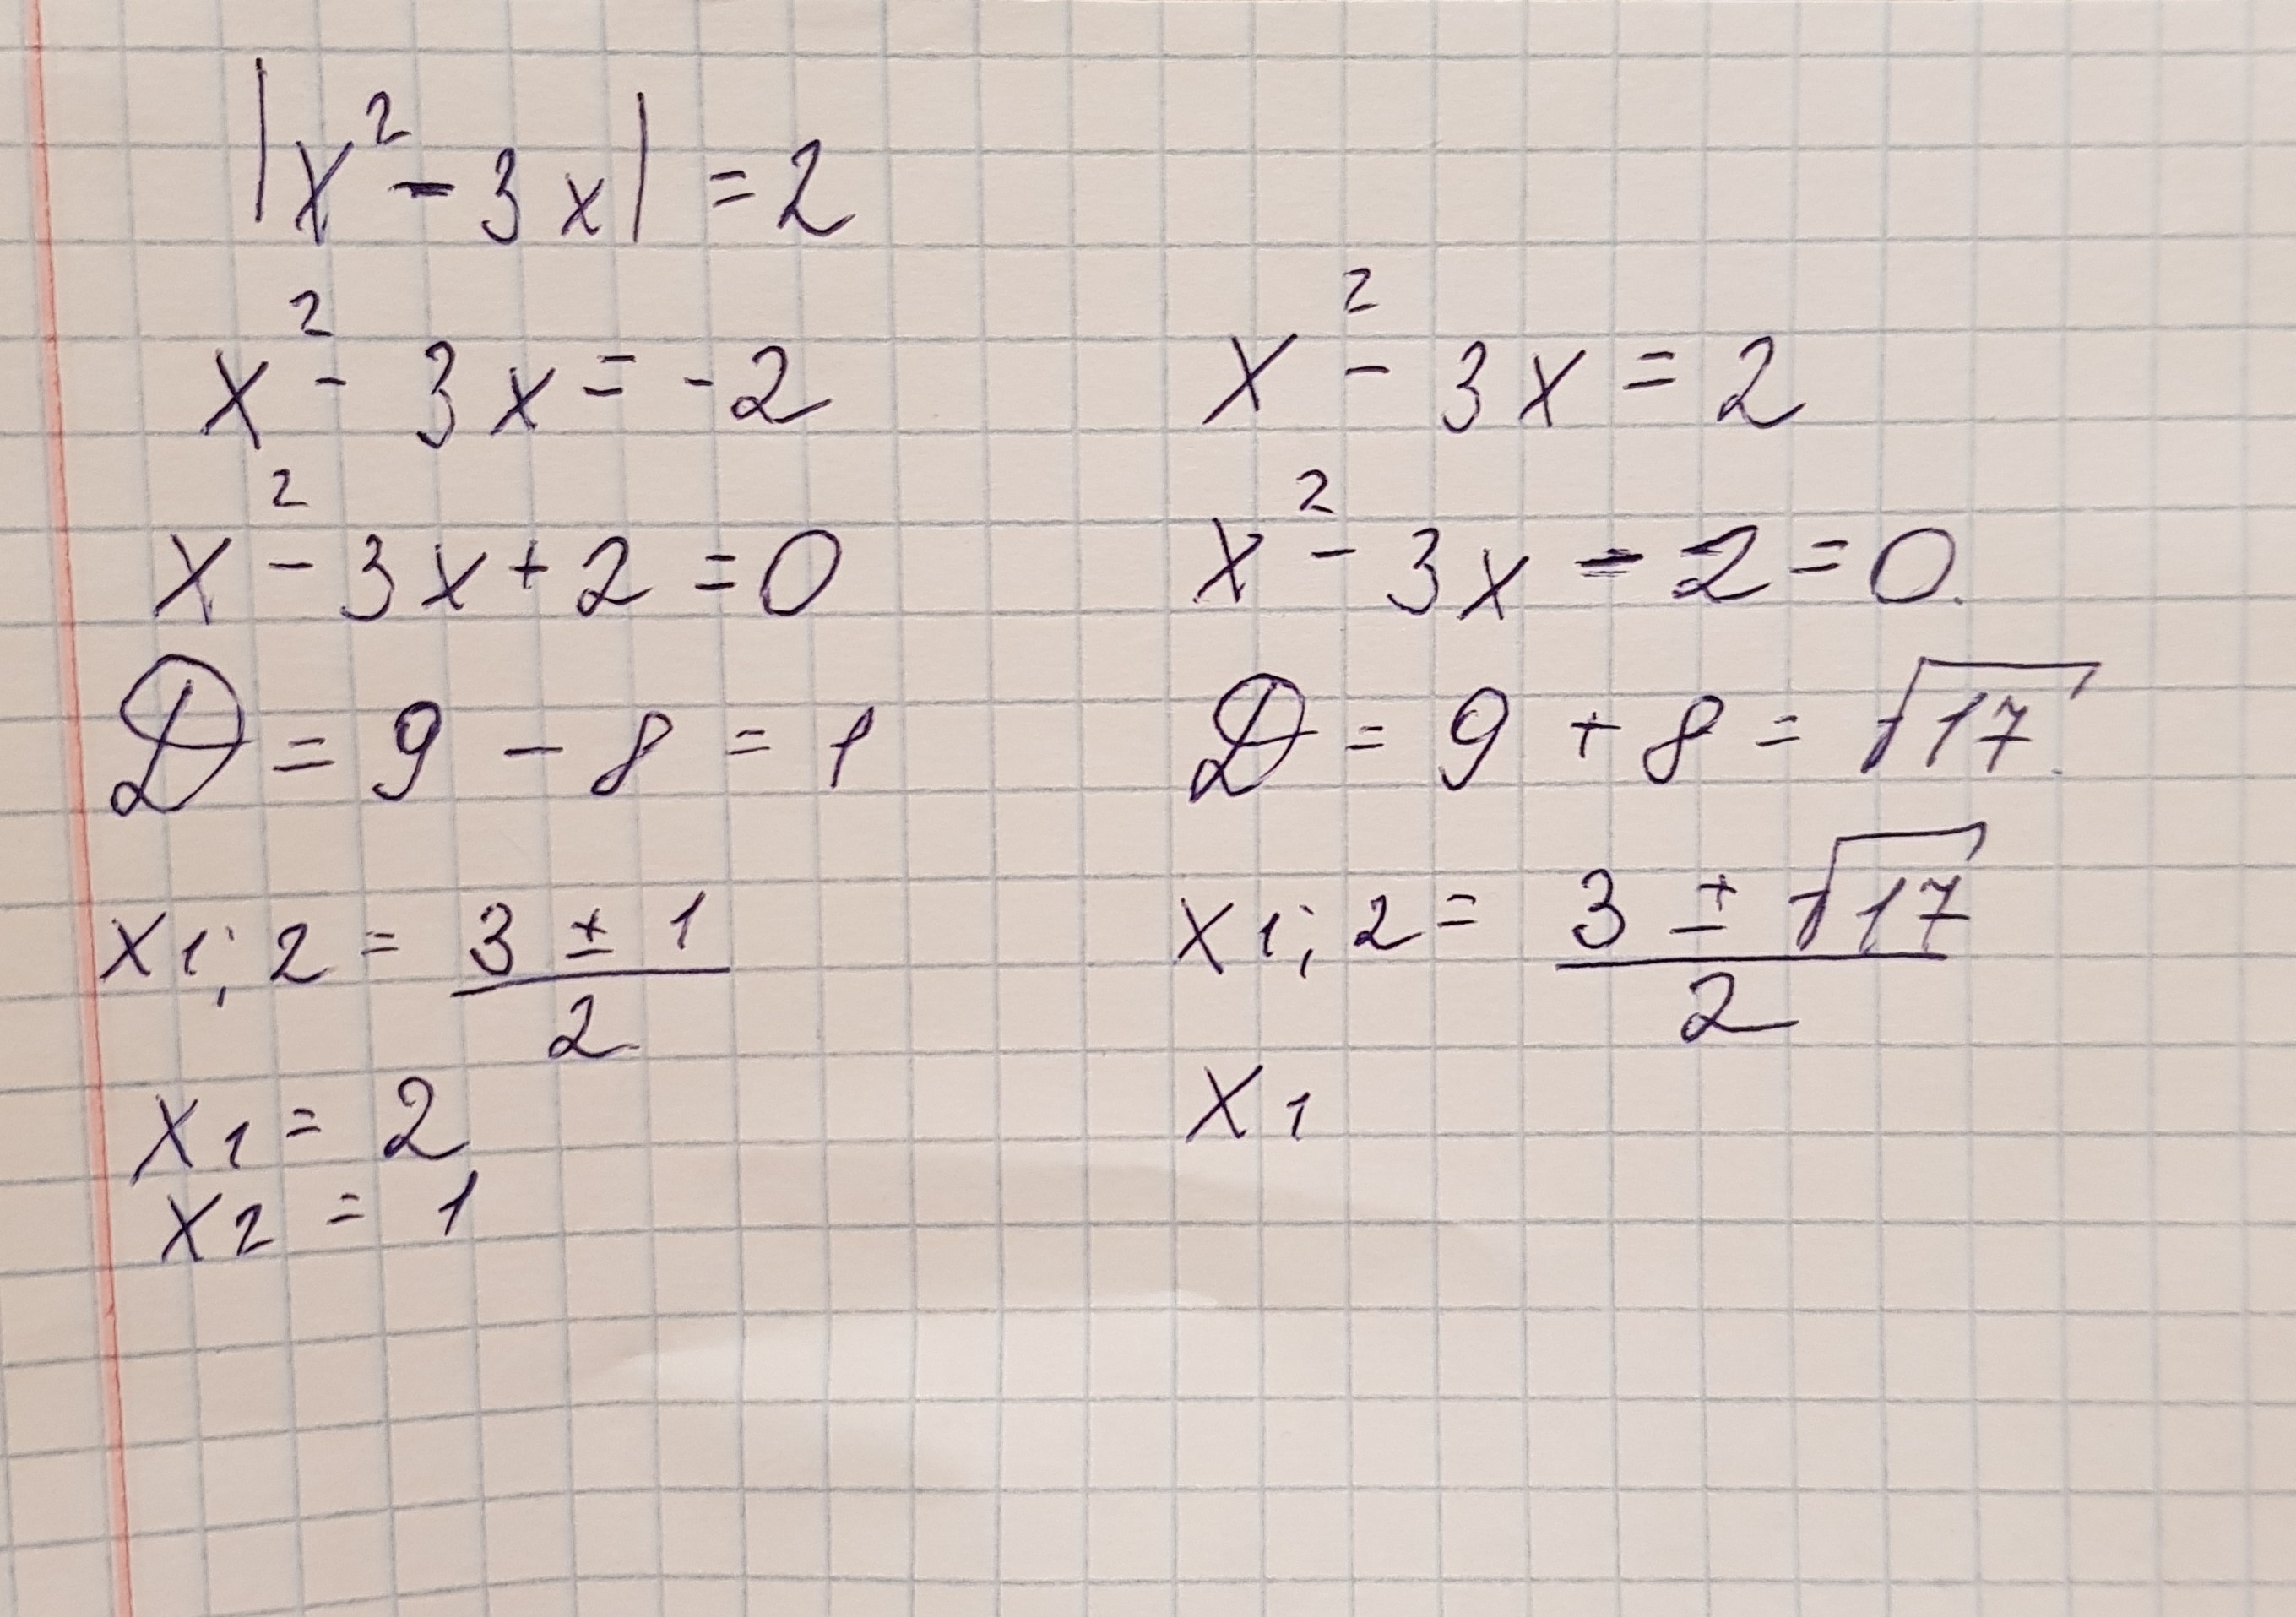 |x² - 3x| = 2
x² - 3x = -2
x² - 3x + 2 = 0
D = 9 - 8 = 1
x1;2 = (3 ± 1)/2
x1 = 2
x2 = 1
x² - 3x = 2
x² - 3x - 2 = 0
D = 9 + 8 = √17
x1;2 = (3 ± √17)/2
x1